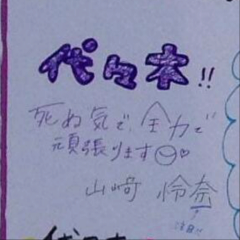 代々木!!
死ぬ気で、全力で
頑張ります
山﨑 怜奈